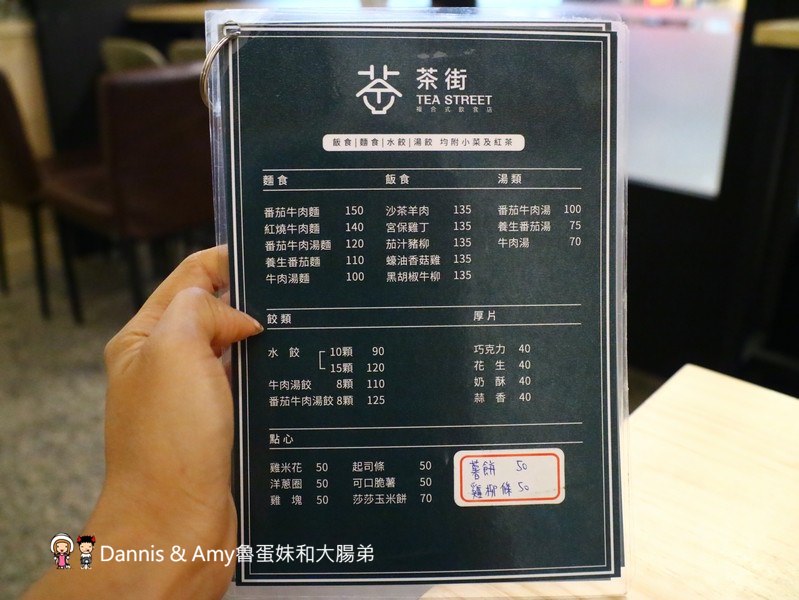 茶街
TEA STREET
複合式飲食店
飯食|麵食|水餃|湯餃 均附小菜及紅茶
麵食
番茄牛肉麵 150
紅燒牛肉麵 140
番茄牛肉湯麵 120
養生番茄麵 110
牛肉湯麵 100
飯食
沙茶羊肉 135
宮保雞丁 135
茄汁豬柳 135
蠔油香菇雞 135
黑胡椒牛柳 135
湯類
番茄牛肉湯 100
養生番茄湯 75
牛肉湯 70
餃類
水餃 10顆 90
15顆 120
牛肉湯餃 8顆 110
番茄牛肉湯餃 8顆 125
厚片
巧克力 40
花生 40
奶酥 40
蒜香 40
點心
雞米花 50
洋蔥圈 50
雞塊 50
起司條 50
可口脆薯 50
莎莎玉米餅 70
薯餅 50
雞柳條 50
Dannis & Amy魯蛋妹和大腸弟